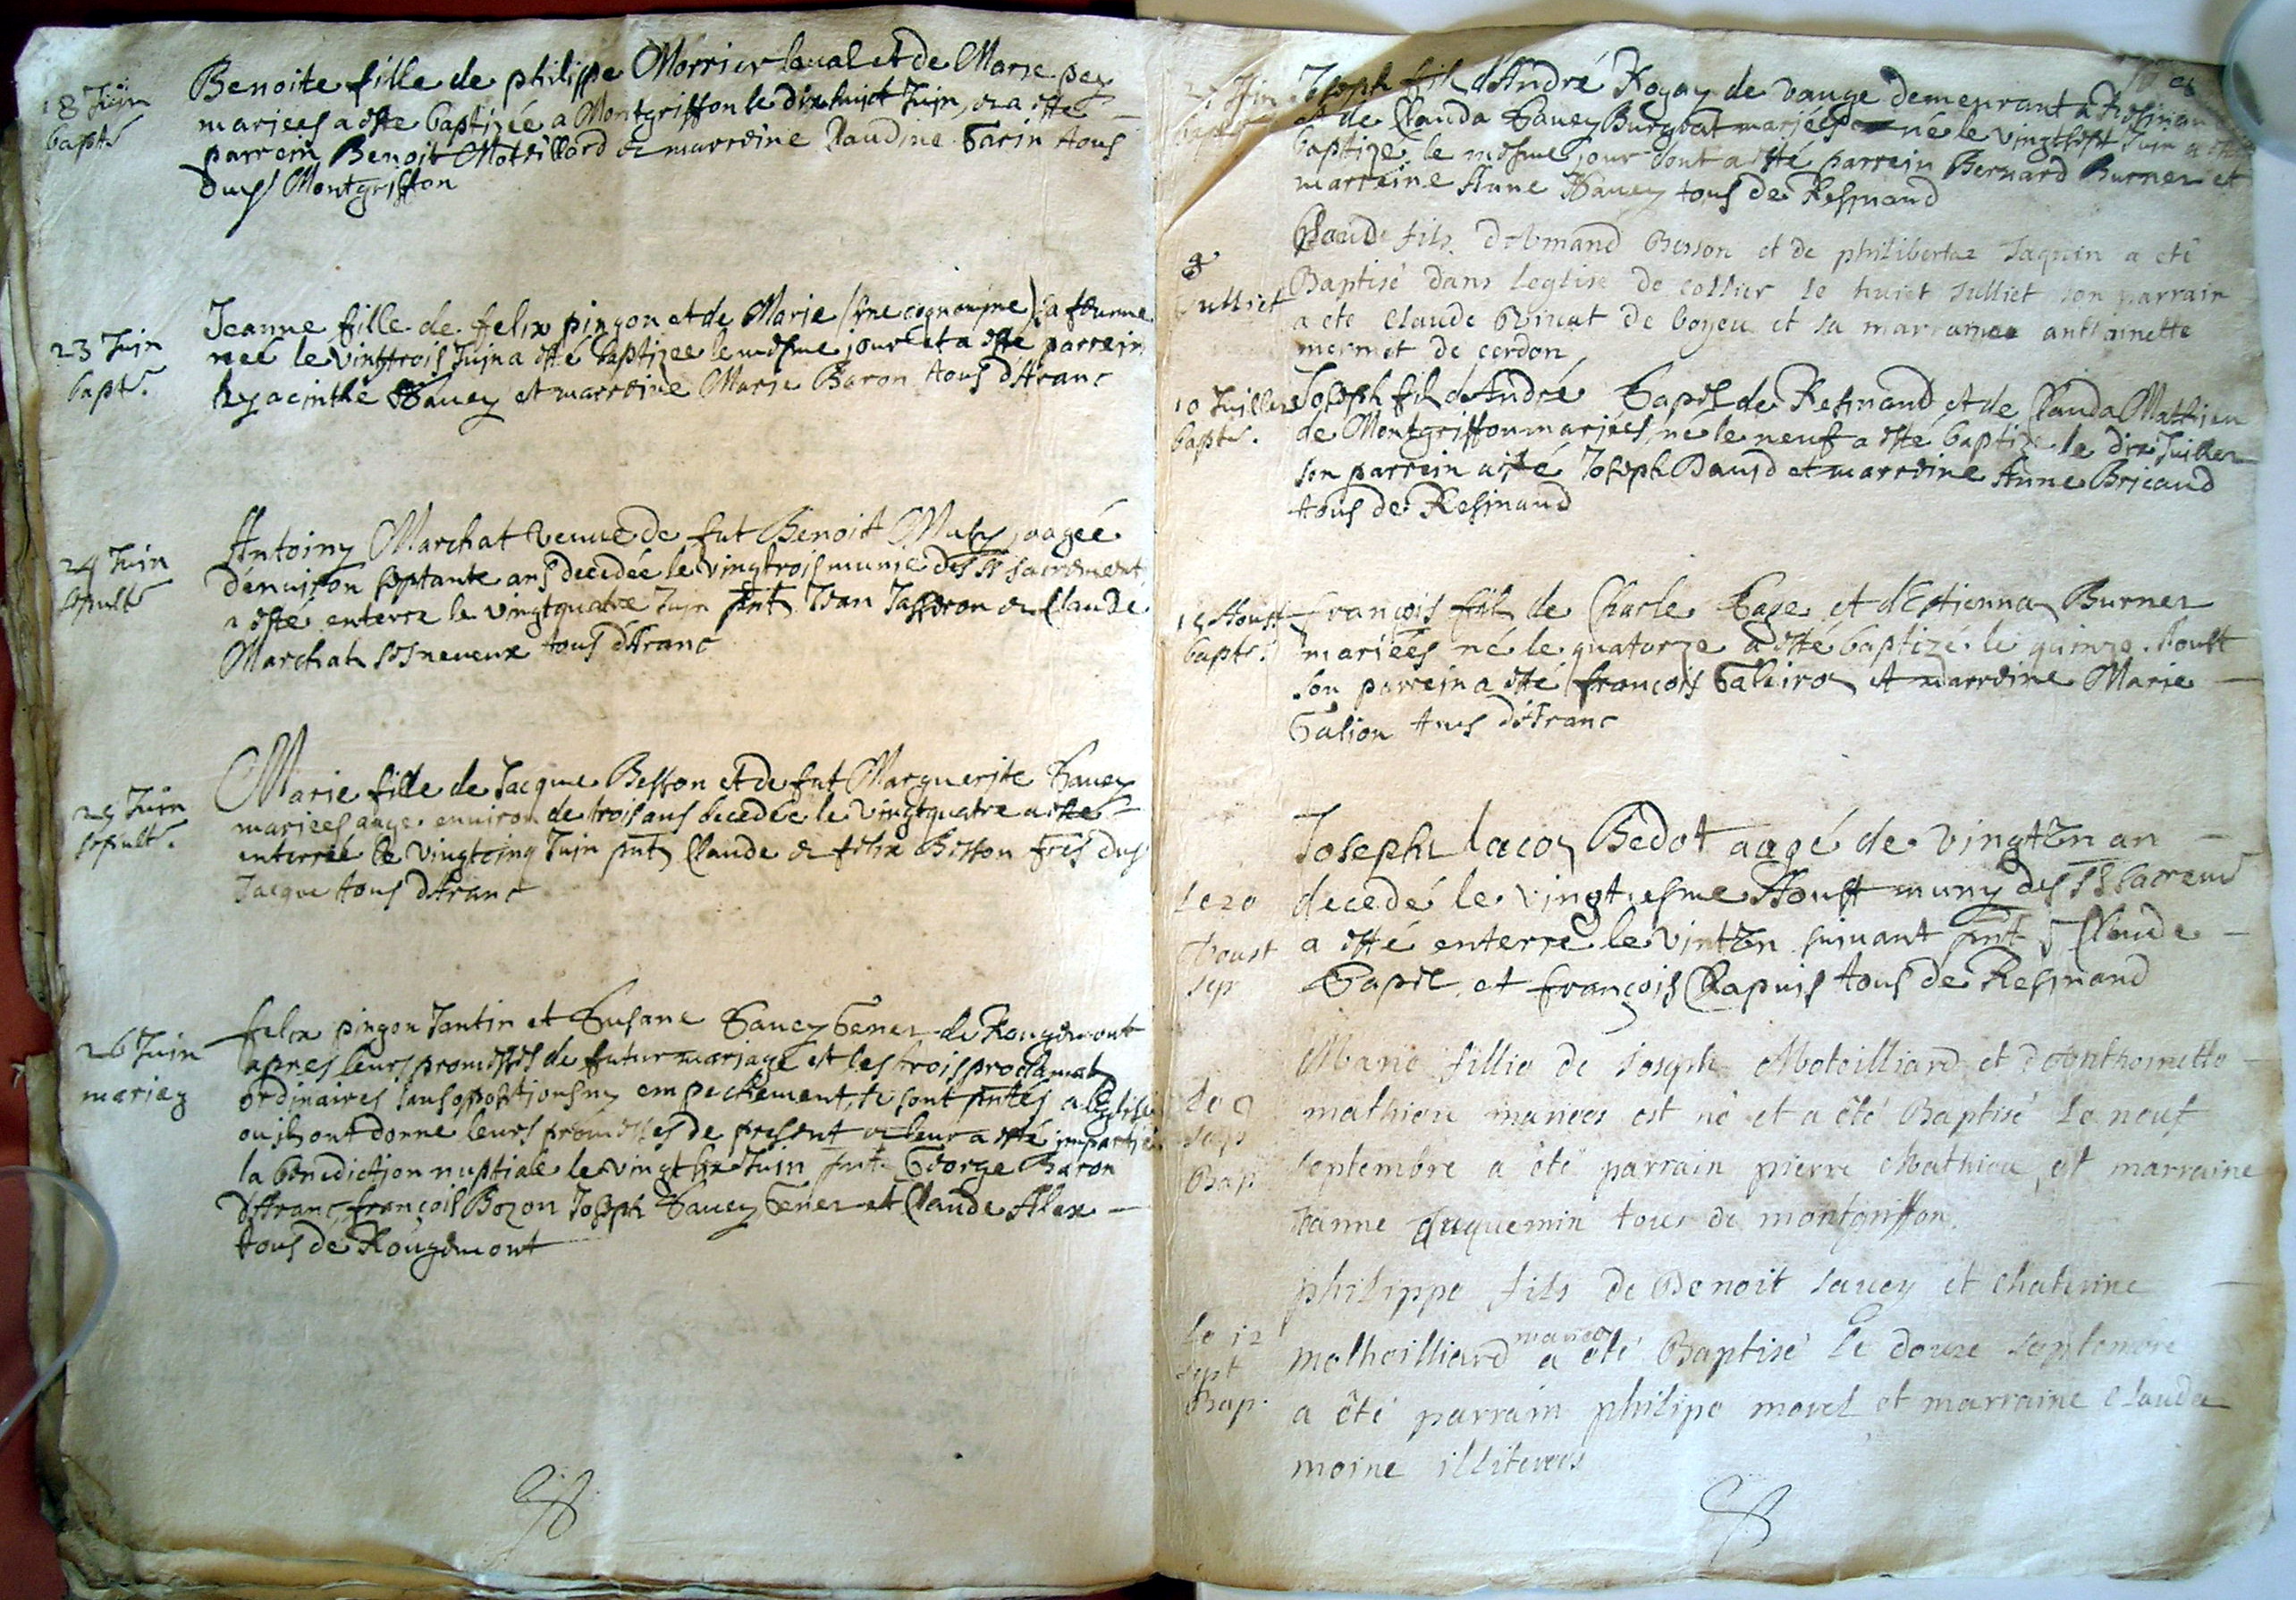 18 Juin
bapt.
Benoite fille de philippe Morrier laual et de Marie pey
mariees a esté baptizée a Montgriffon le dix huict Juin, et a esté
parrein Benoit Moteillard et marreine Claudine Tarin tous
dud Montgriffon
23 Juin
bapt.
Jeanne fille de felix pingon et de Marie
neé le vinttrois Juin a esté baptizee le mesme jour et a esté parrein
hyacinthe Sauey et marreine Marie Baron tous d'Aranc
24 Juin
sepult.
Antoiny Marchat veuue de fut Benoit Muly, aageé
denuiron septante ans decedée le vingtrois munie des Sts sacrement
a esté enterré le vingtquatre Juin pnt Jean Jasseron et Claude
Marchat ses neueux tous d'Aranc
25 Juin
sepult.
Marie fille de Jacque Besson et de fut Marguerite Sauey
mariees aage enuiron de trois ans decedée le vingtquatre a esté
enterrée le vingtcinq Juin pnt Claude et felix Besson fres dud
Jacque tous d'Aranc
26 Juin
mariag
felix pingon Jantin et Susane Sauey Gener de Rougemont
apres leurs promesses de futur mariage et les trois proclamat
ordinaires sans oppositions ny empechement, se sont pntés a leglise
ou ils ont donne leurs promesses de present et leur a esté impartie
la benediction nuptiale le vingt six Juin pnt George Baron
d'Aranc, françois Bozon Joseph Sauey Gener et Claude Alex
tous de Rougemont
27 Juin
bapt.
Joseph fil d'André Rogay de vauge demeurant a Resinand
et de Clauda Sauey Burgbat mariées né le vingtsept Juin a esté
baptizé le mesme jour dont a esté parrein Bernard Burner et
marreine Anne Sauey tous de Resinand
8
Julliet
Claude fils d'Armand Besson et de philiberte Jaquin a eté
Baptisé dans leglise de collier le huict Julliet son parrain
a ete Claude Bruat de boyeu et sa marraine anthoinette
mermet de cerdon
10 Juillet
bapt.
Joseph fil d'André Sapel de Resinand et de Clauda Mathieu
de Montgriffon mariées, né le neuf a esté baptizé le dix Juillet
son parrein a esté Joseph Dauid et marreine Anne Bricaud
tous de Resinand
15 Aoust
bapt.
françois fil de Charle Sage et d'Etienna Burner
mariées né le quatorze a esté baptizé le quinze Aoust
son parrein a esté françois Galeiron et marreine Marie
Galion tous d'Aranc
Le 20
Aoust
sep
Joseph Jacoz Bedot aagé de vingt un an
decedé le vingtiesme Aoust muny des Sts sacrement
a esté enterré le vint un suiuant pnt Claude
Sapel et françois Chapuis tous de Resinand
Le 9
sep
Bap
Marie fillie de Joseph Moteilliard et d'Anthoinette
mathieu mariees est né et a été Baptisé le neuf
septembre a été parrain pierre Mathieu, et marraine
Janne Jaquemin tous de montgriffon.
Le 12
sept
Bap.
philippe fils de Benoit sauey et Chaterine
motheilliard mariés a été Baptisé le douze septembre
a été parrain philipe morel et marraine Clauda
moine illiterees